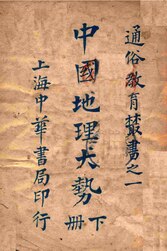 通俗教育叢書之一
中國地理大勢
下冊
上海中華書局印行